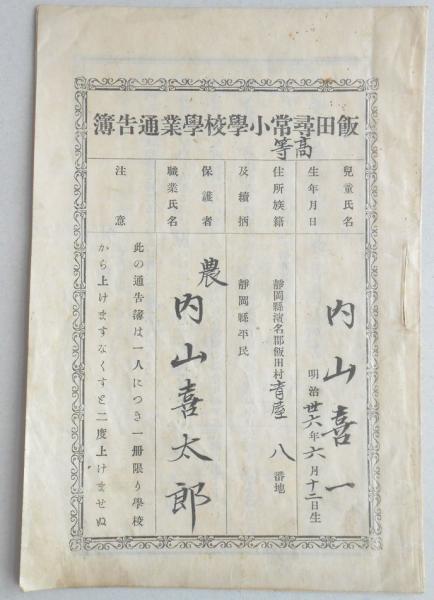 飯田尋常小學校學業通告簿
高等
兒童氏名
內山喜一
生年月日
明治卅六年六月十二日生
住所族籍
靜岡縣濱名郡飯田村青屋八番地
靜岡縣平民
及續柄
保護者
職業氏名
農
內山喜太郎
注意
此の通告簿は一人につき一冊限り學校
から上けますなくすと二度上けませぬ